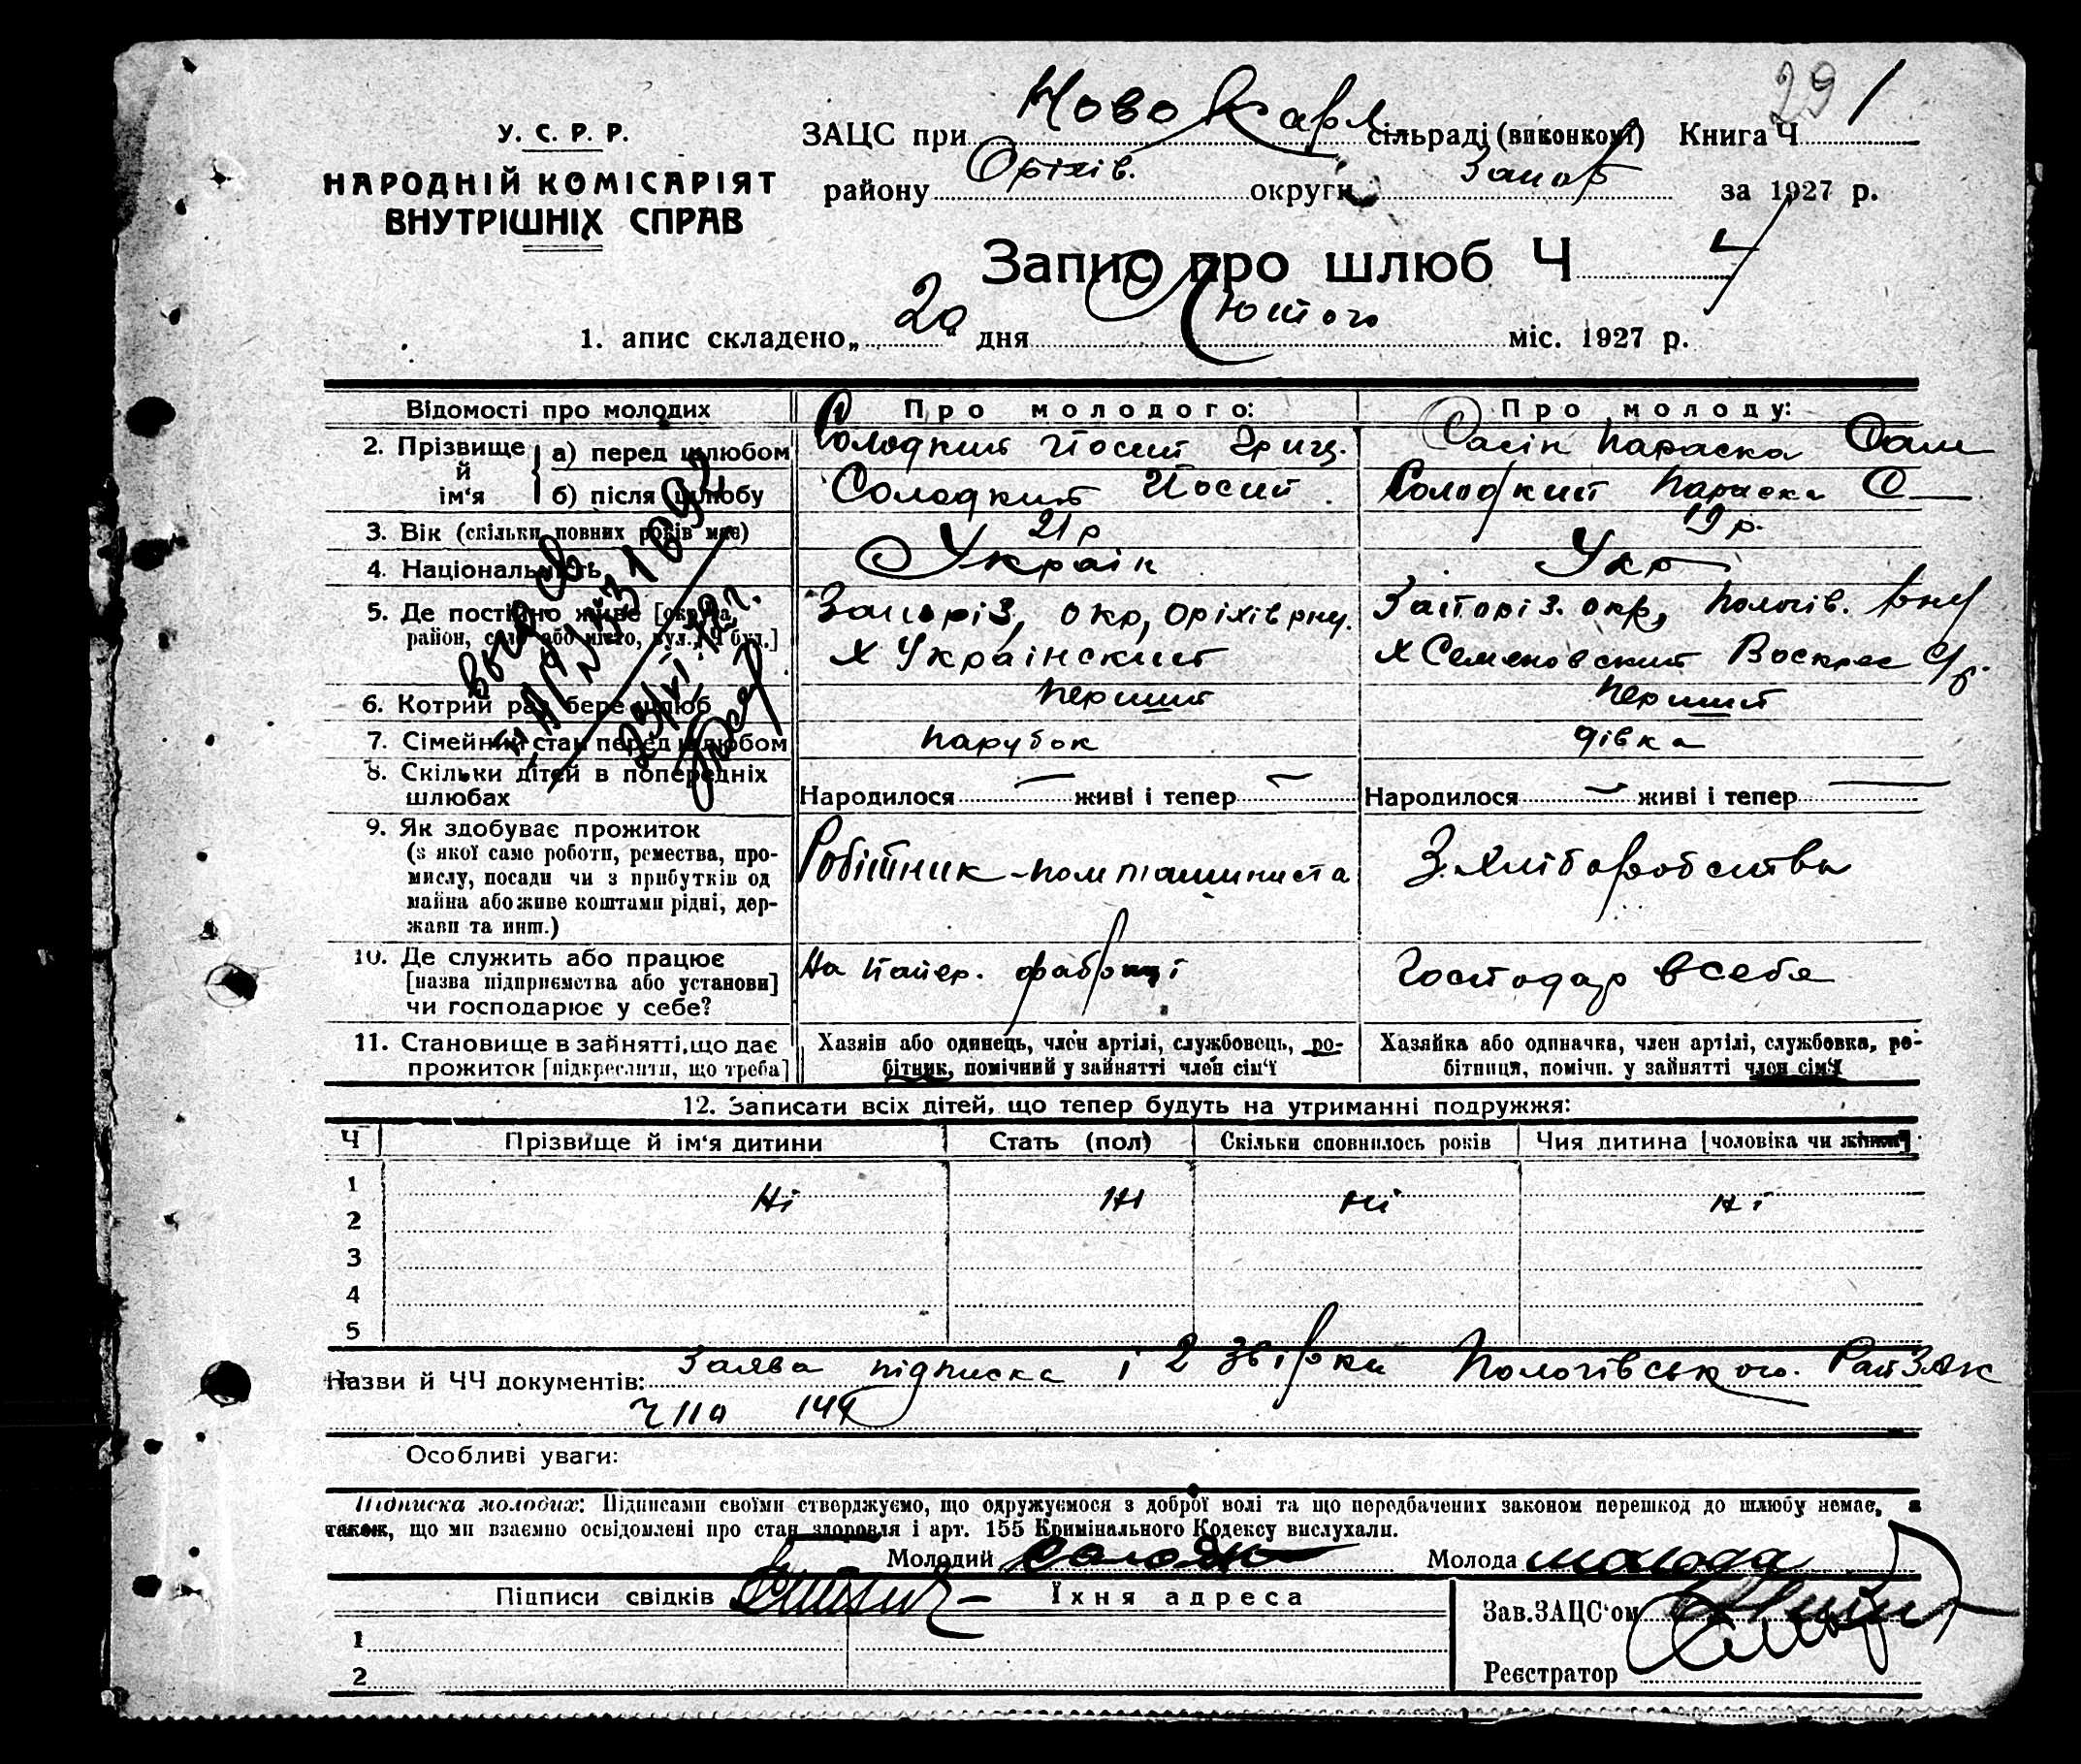 29 1
У. С. Р. Р.
НАРОДНІЙ КОМІСАРІЯТ
ВНУТРІШНІХ СПРАВ
ЗАЦС при Ново Карл. сільраді (виконкомі) Книга Ч
району Оріхів. округи Запор за 1927 р.
Запис про шлюб Ч 4
1. апис складено „20“ дня Лютого міс. 1927 р.
Відомості про молодих Про молодого: Про молоду:
2. Прізвище й ім‘я а) перед шлюбом Солодкий Йосип Гриц. Сасін Параска Сам
б) після шлюбу Солодкий Йосип. Солодкий Параска С—
3. Вік (скільки повних років має) 21 р 19 р.
4. Національність Україн Укр
5. Де постійно живе [округа, Запоріз, окр, Оріхів рну. Запоріз. окр, Пологів. рну
район, село або місто, вул., Ч буд.] х Украінский х Семеновский Воскрес с/р.
6. Котрий раз бере шлюб Перший Перший
7. Сімейний стан перед шлюбом парубок дівка
8. Скільки дітей в попередніх
шлюбах Народилося — живі і тепер — Народилося — живі і тепер —
9. Як здобуває прожиток
(з якої само роботи, ремества, про-
мислу, посади чи з прибутків од Робітник - пом машиниста З хліборобства
майна або живе коштами рідні, дер-
жави та инш.)
10. Де служить або працює На папер. фабриці Господар в себе
[назва підприємства або установи]
чи господарює у себе?
11. Становище в зайнятті, що дає Хазяїн або одинець, член артілі, службовець, ро- Хазяйка або одиначка, член артілі, службовка, ро-
прожиток [підкреслити, що треба] бітник, помічний у зайнятті член сім‘ї бітниця, помічн. у зайнятті член сім‘ї
23/VI
12. Записати всіх дітей, що тепер будуть на утриманні подружжя:
Ч Прізвище й ім‘я дитини Стать (пол) Скільки сповнилось років Чия дитина [чоловіка чи жінки]
1
Ні Ні Ні Ні
2
3
4
5
Назви й ЧЧ документів: Заява підписка і 2 Звірки Пологівського. Рай
144
Особливі уваги:
Підписка молодих: Підписами своїми стверджуємо, що одружуємося з доброї волі та що передбачених законом перешкод до шлюбу немає, а
також, що ми взаємно освідомлені про стан здоровля і арт. 155 Кримінального Кодексу вислухали.
Молодий Солодк Молода молода
Підписи свідків Їхня адреса
Зав.ЗАЦС‘ом
1
Реєстратор
2